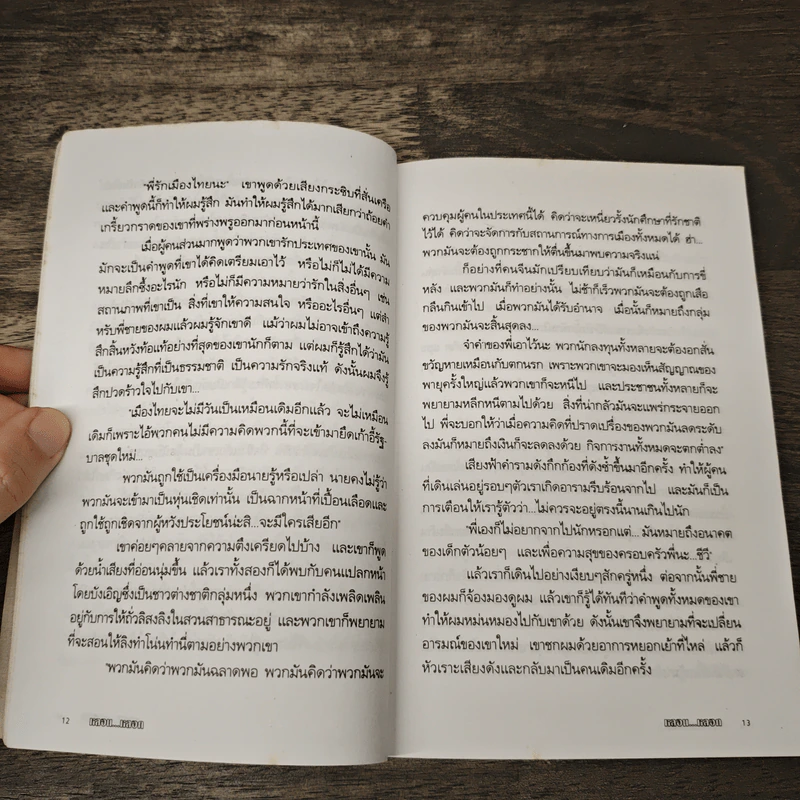 "พี่รักเมืองไทยนะ" เขาพูดด้วยเสียงกระซิบที่สั่นเครือ
และคำพูดนี้ก็ทำให้ผมรู้สึก มันทำให้ผมรู้สึกได้มากเสียกว่าถ้อยคำ
เกรี้ยวกราดของเขาที่พร่างพรูออกมาก่อนหน้านี้
เมื่อผู้คนส่วนมากพูดว่าพวกเขารักประเทศของเขานั้น มัน
มักจะเป็นคำพูดที่เขาได้คิดเตรียมเอาไว้ หรือไม่ก็ไม่ได้มีความ
หมายลึกซึ้งอะไรนัก หรือไม่ก็มีความหมายว่ารักในสิ่งอื่นๆ เช่น
สถานภาพที่เขาเป็น สิ่งที่เขาให้ความสนใจ หรืออะไรอื่นๆ แต่สำ
หรับพี่ชายของผมแล้วผมรู้จักเขาดี แม้ว่าผมไม่อาจเข้าถึงความรู้
สึกสิ้นหวังท้อแท้อย่างที่สุดของเขานักก็ตาม แต่ผมก็รู้สึกได้ว่ามัน
เป็นความรู้สึกที่เป็นธรรมชาติ เป็นความรักจริงแท้ ดังนั้นผมจึงรู้
สึกปวดร้าวใจไปกับเขา...
"เมืองไทยจะไม่มีวันเป็นเหมือนเดิมอีกแล้ว จะไม่เหมือน
เดิมก็เพราะไอ้พวกคนไม่มีความคิดพวกนี้ที่จะเข้ามายึดเก้าอี้รัฐ-
บาลชุดใหม่...
พวกมันถูกใช้เป็นเครื่องมือนายรู้หรือเปล่า นายคงไม่รู้ว่า
พวกมันจะเข้ามาเป็นหุ่นเชิดเท่านั้น เป็นฉากหน้าที่เปื้อนเลือดและ
ถูกใช้ถูกเชิดจากผู้หวังประโยชน์น่ะสิ...จะมีใครเสียอีก"
เขาค่อยๆคลายจากความตึงเครียดไปบ้าง และเขาก็พูด
ด้วยน้ำเสียงที่อ่อนนุ่มขึ้น แล้วเราทั้งสองก็ได้พบกับคนแปลกหน้า
โดยบังเอิญซึ่งเป็นชาวต่างชาติกลุ่มหนึ่ง พวกเขากำลังเพลิดเพลิน
อยู่กับการให้ถั่วลิสงลิงในสวนสาธารณะอยู่ และพวกเขาก็พยายาม
ที่จะสอนให้ลิงทำโน่นทำนี่ตามอย่างพวกเขา
"พวกมันคิดว่าพวกมันฉลาดพอ พวกมันคิดว่าพวกมันจะ
12 หลอน...หลอก
ควบคุมผู้คนในประเทศนี้ได้ คิดว่าจะเหนี่ยวรั้งนักศึกษาที่รักชาติ
ไว้ได้ คิดว่าจะจัดการกับสถานการณ์ทางการเมืองทั้งหมดได้ ฮ่า...
พวกมันจะต้องถูกกระชากให้ตื่นขึ้นมาพบความจริงแน่
ก็อย่างที่คนจีนมักเปรียบเทียบว่ามันก็เหมือนกับการขี่
หลัง และพวกมันก็ทำอย่างนั้น ไม่ช้าก็เร็วพวกมันจะต้องถูกเสือ
กลืนกินเข้าไป เมื่อพวกมันได้รับอำนาจ เมื่อนั้นก็หมายถึงกลุ่ม
ของพวกมันจะสิ้นสุดลง...
จำคำของพี่เอาไว้นะ พวกนักลงทุนทั้งหลายจะต้องอกสั่น
ขวัญหายเหมือนกับตกนรก เพราะพวกเขาจะมองเห็นสัญญาณของ
พายุครั้งใหญ่แล้วพวกเขาก็จะหนีไป และประชาชนทั้งหลายก็จะ
พยายามหลีกหนีตามไปด้วย สิ่งที่น่ากลัวมันจะแพร่กระจายออก
ไป พี่จะบอกให้ว่าเมื่อความคิดที่ปราดเปรื่องของพวกมันลดระดับ
ลงมันก็หมายถึงเงินก็จะลดลงด้วย กิจการงานทั้งหมดจะตกต่ำลง"
เสียงฟ้าคำรามดังกึกก้องที่ดังซ้ำขึ้นมาอีกครั้ง ทำให้ผู้คน
ที่เดินเล่นอยู่รอบๆตัวเราเกิดอารามรีบร้อนจากไป และมันก็เป็น
การเตือนให้เรารู้ตัวว่า...ไม่ควรจะอยู่ตรงนี้นานเกินไปนัก
"พี่เองก็ไม่อยากจากไปนักหรอกแต่... มันหมายถึงอนาคต
ของเด็กตัวน้อยๆ และเพื่อความสุขของครอบครัวพี่นะ...ซีวี"
แล้วเราก็เดินไปอย่างเงียบๆสักครู่หนึ่ง ต่อจากนั้นพี่ชาย
ของผมก็จ้องมองดูผม แล้วเขาก็รู้ได้ทันทีว่าคำพูดทั้งหมดของเขา
ทำให้ผมหม่นหมองไปกับเขาด้วย ดังนั้นเขาจึงพยายามที่จะเปลี่ยน
อารมณ์ของเขาใหม่ เขาชกผมด้วยอาการหยอกเย้าที่ไหล่ แล้วก็
หัวเราะเสียงดังและกลับมาเป็นคนเดิมอีกครั้ง
หลอน...หลอก 13